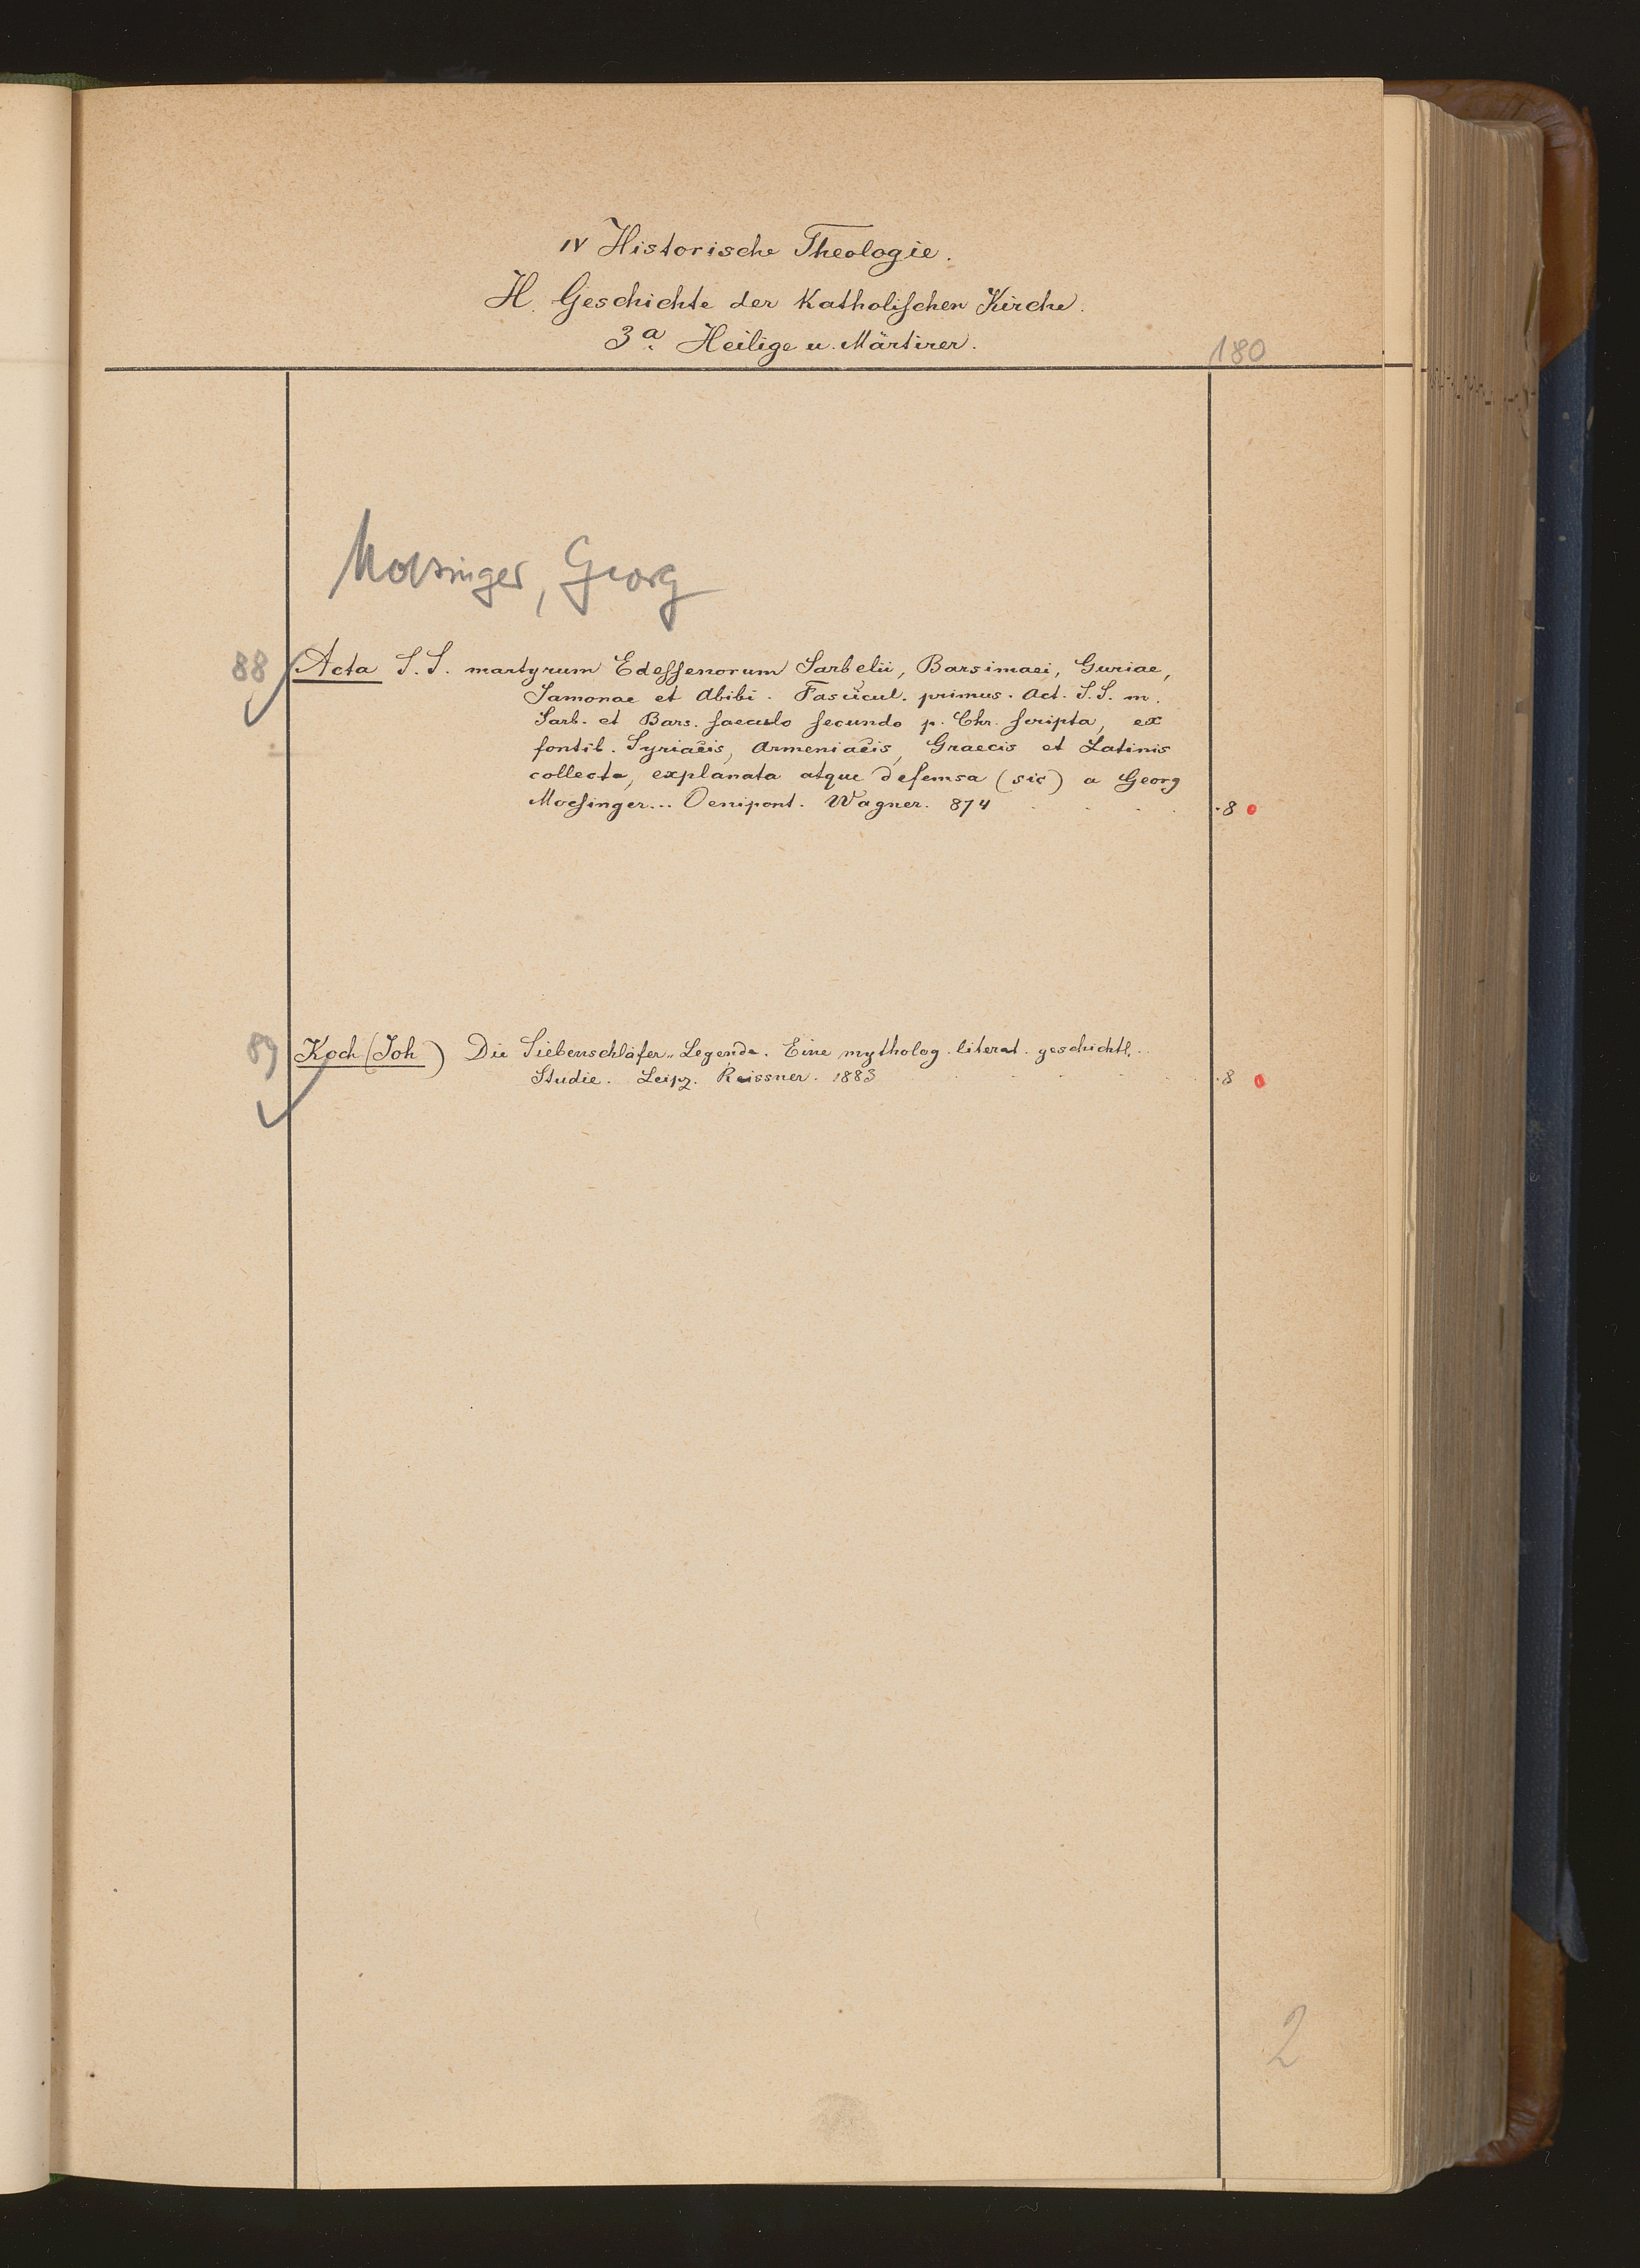 IV Historische Theologie.
H. Geschichte der Katholischen Kirche.
3a. Heilige u. Märtirer.
180
Moesinger, Georg
88 Acta S. S. martyrum Edessenorum Sarbelii, Barsimaei, Guriae,
Samonae et Abibi. Fascicul. primus. Act. S. S. m.
Sarb. et Bars. saeculo secundo p. Chr. scripta, ex
fontib. Syriacis, Armeniacis, Graecis et Latinis
collecta, explanata atque defemsa (sic) a Georg
Moesinger... Oenipont. Wagner. 874 . . . . . 8
89 Koch (Joh) Die Siebenschläfer-Legende. Eine mytholog. literat. geschichtl.
Studie. Leipz. Reissner. 1883 . . . . . 8
2